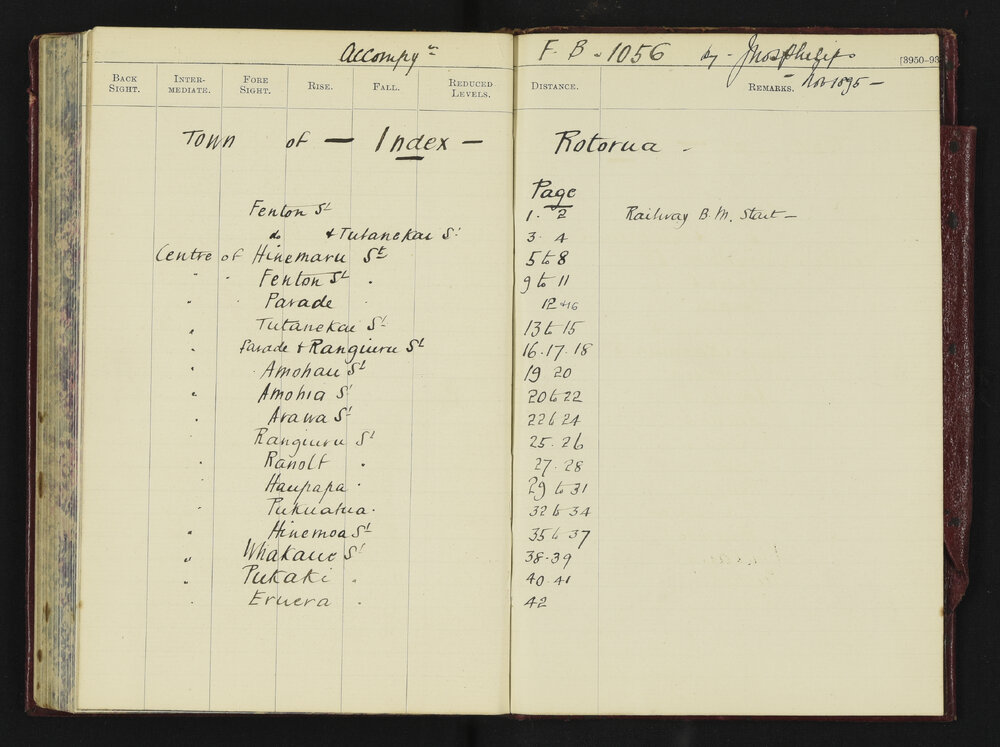 Accompyg F. B - 1056 by - Jnos Philips [3950-93
Nov 1895 -
BACK SIGHT. INTER-MEDIATE. FORE SIGHT. RISE. FALL. REDUCED LEVELS. DISTANCE. REMARKS.
Town of - Index - Rotorua -
Page
Fenton St 1. 2 Railway B.M. Start -
do & Tutanekai St 3. 4
Centre of Hinemaru St 5 to 8
" " Fenton St 9 to 11
" Parade 12 & 16
" Tutanekai St 13 to 15
" Parade & Rangiuru St 16. 17. 18
" Amohau St 19 20
" Amohia St 20 to 22
" Arawa St 22 to 24
" Rangiuru St 25. 26
" Ranolf " 27. 28
" Haupapa " 29 to 31
" Pukuatua " 32 to 34
" Hinemoa St 35 to 37
" Whakaue St 38. 39
" Pukaki " 40. 41
" Eruera " 42